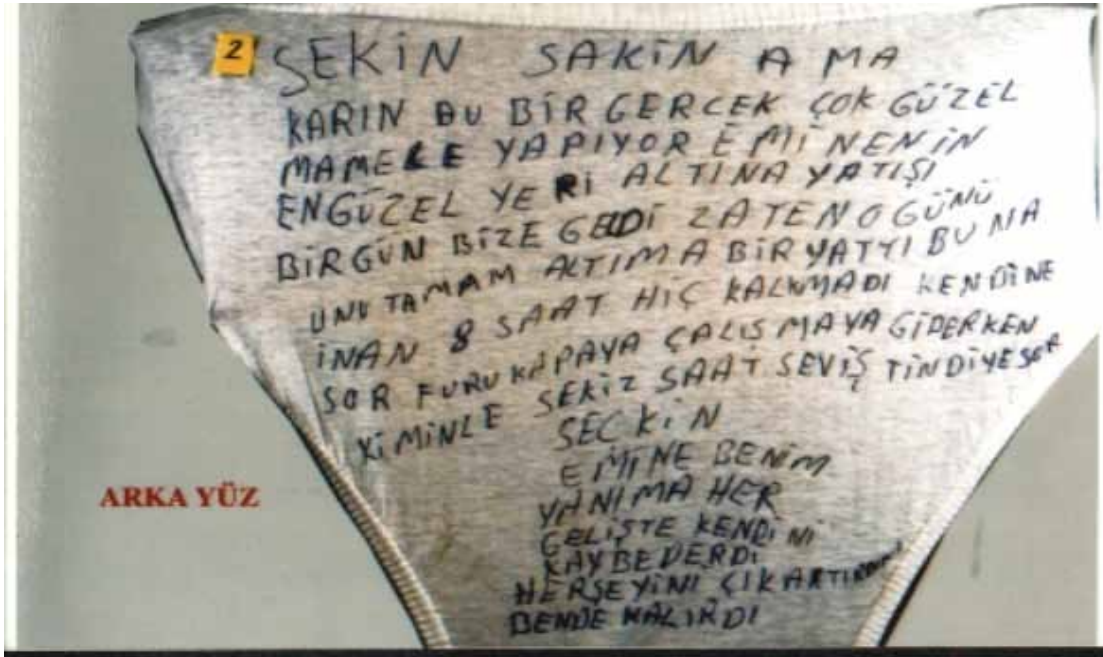 2
SEKiN SAKiN AMA
KARIN BU BiR GERCEK ÇOK GÜZEL
MAMELE YAPIYOR EMiNENiN
ENGÜZEL YERi ALTINA YATIŞI
BiRGÜN BiZE GEDi ZATEN O GÜNÜ
UNUTAMAM ALTIMA BiR YATYI BUNA
iNAN 8 SAAT HiÇ KALKMADI KENDiNE
SOR FURUKAPAYA ÇALIŞMAYA GiDERKEN
KiMiNLE SEKiZ SAAT SEViŞTiNDiYESOR
SECKiN
EMiNE BENiM
YANIMA HER
GELiŞTE KENDiNi
KAYBEDERDi
HERŞEYiNi ÇIKARTIR
BENDE KALIRDI
ARKA YÜZ